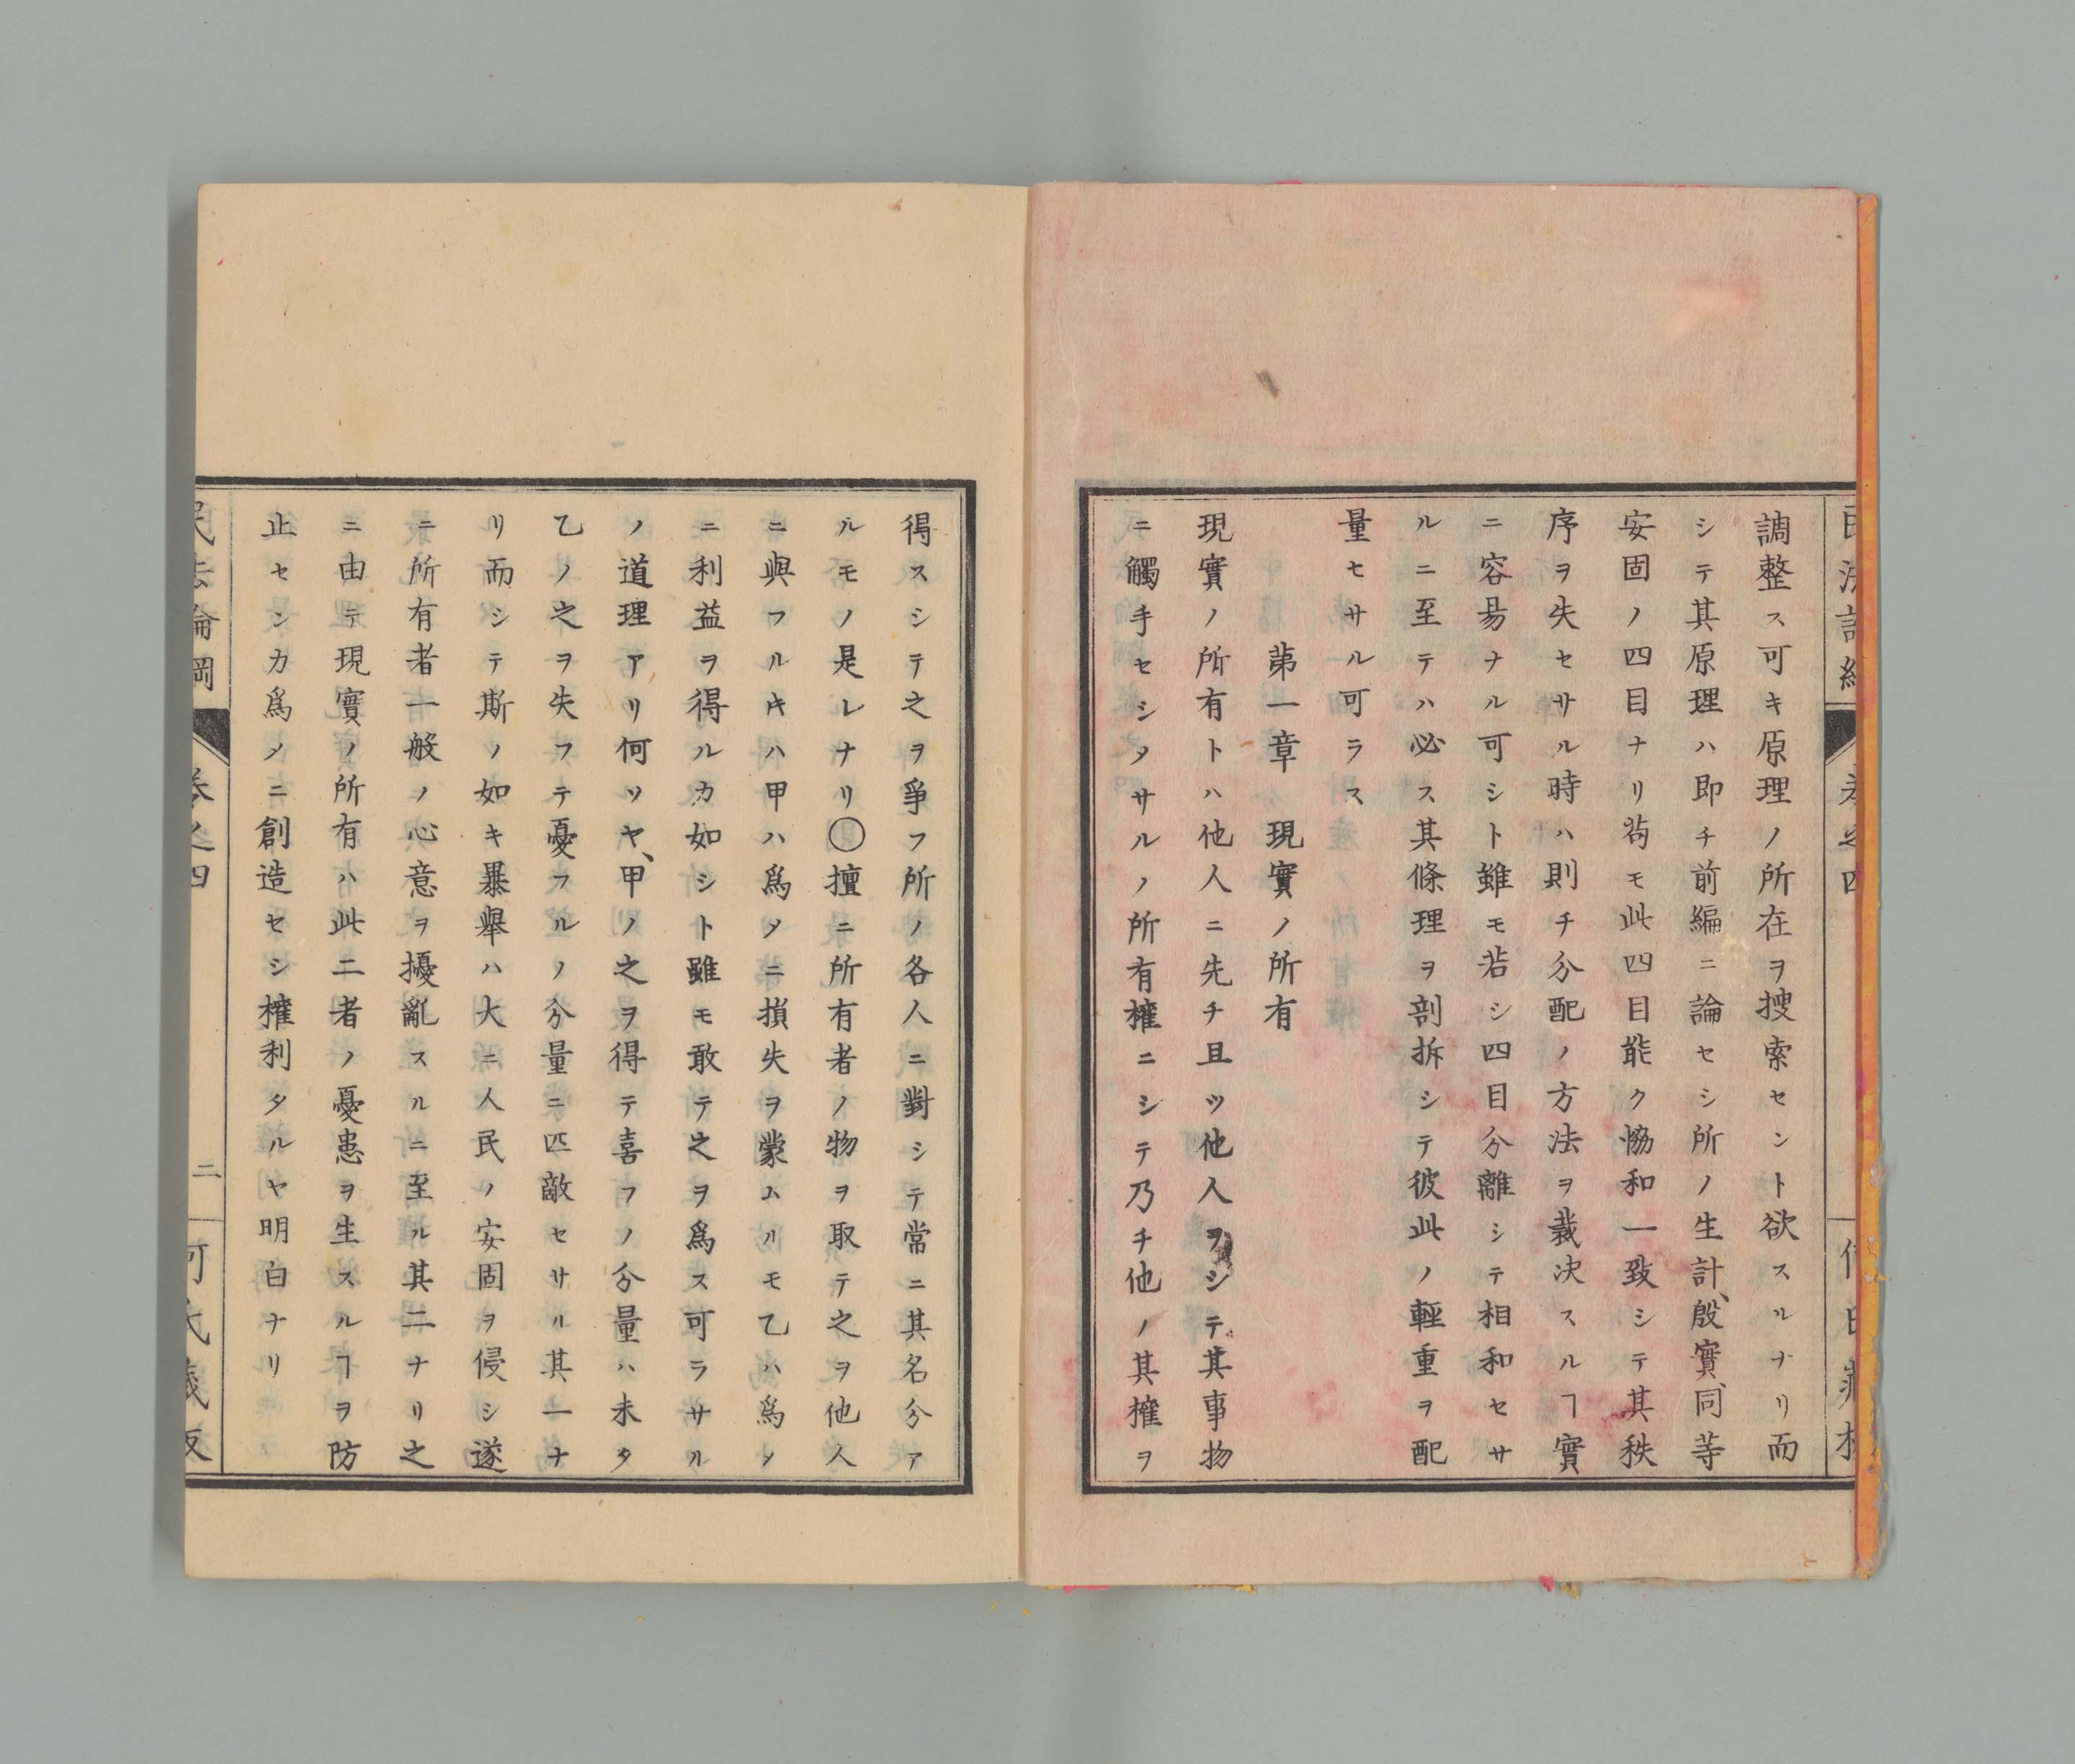 調整ス可キ原理ノ所在ヲ搜索セント欲スルナリ而
シテ其原理ハ即チ前編ニ論セシ所ノ生計、殷實、同等
安固ノ四目ナリ苟モ此四目能ク恊和一致シテ其秩
序ヲ失セサル時ハ則チ分配ノ方法ヲ裁决スルヿ實
ニ容昜ナル可シト雖モ若シ四目分離シテ相和セサ
ルニ至テハ必ス其條理ヲ剖拆シテ彼此ノ輕重ヲ配
量セサル可ラス
苐一章 現實ノ所有
現實ノ所有トハ他人ニ先チ且ツ他人ヲシテ其事物
ニ觸手セシメサルノ所有權ニシテ乃チ他ノ其權ヲ
得スシテ之ヲ爭フ所ノ各人ニ對シテ常ニ其名分ア
ルモノ是レナリ〇擅ニ所有者ノ物ヲ取テ之ヲ他人
ニ與フルキハ甲ハ爲メニ損失ヲ蒙ムルモ乙ハ爲メ
ニ利益ヲ得ルカ如シト雖モ敢テ之ヲ爲ス可ラサル
ノ道理アリ何ツヤ、甲ノ之ヲ得テ喜フノ分量ハ未タ
乙ノ之ヲ失フテ憂フルノ分量ニ匹敵セサル其一ナ
リ而シテ斯ノ如キ暴舉ハ大ニ人民ノ安固ヲ侵シ遂
ニ所有者一般ノ心意ヲ擾亂スルニ至ル其二ナリ之
ニ由テ現實ノ所有ハ此二者ノ憂患ヲ生スルヿヲ防
止センカ爲メニ創造セシ權利タルヤ明白ナリ
民法論綱 卷之四 二 何氏藏版